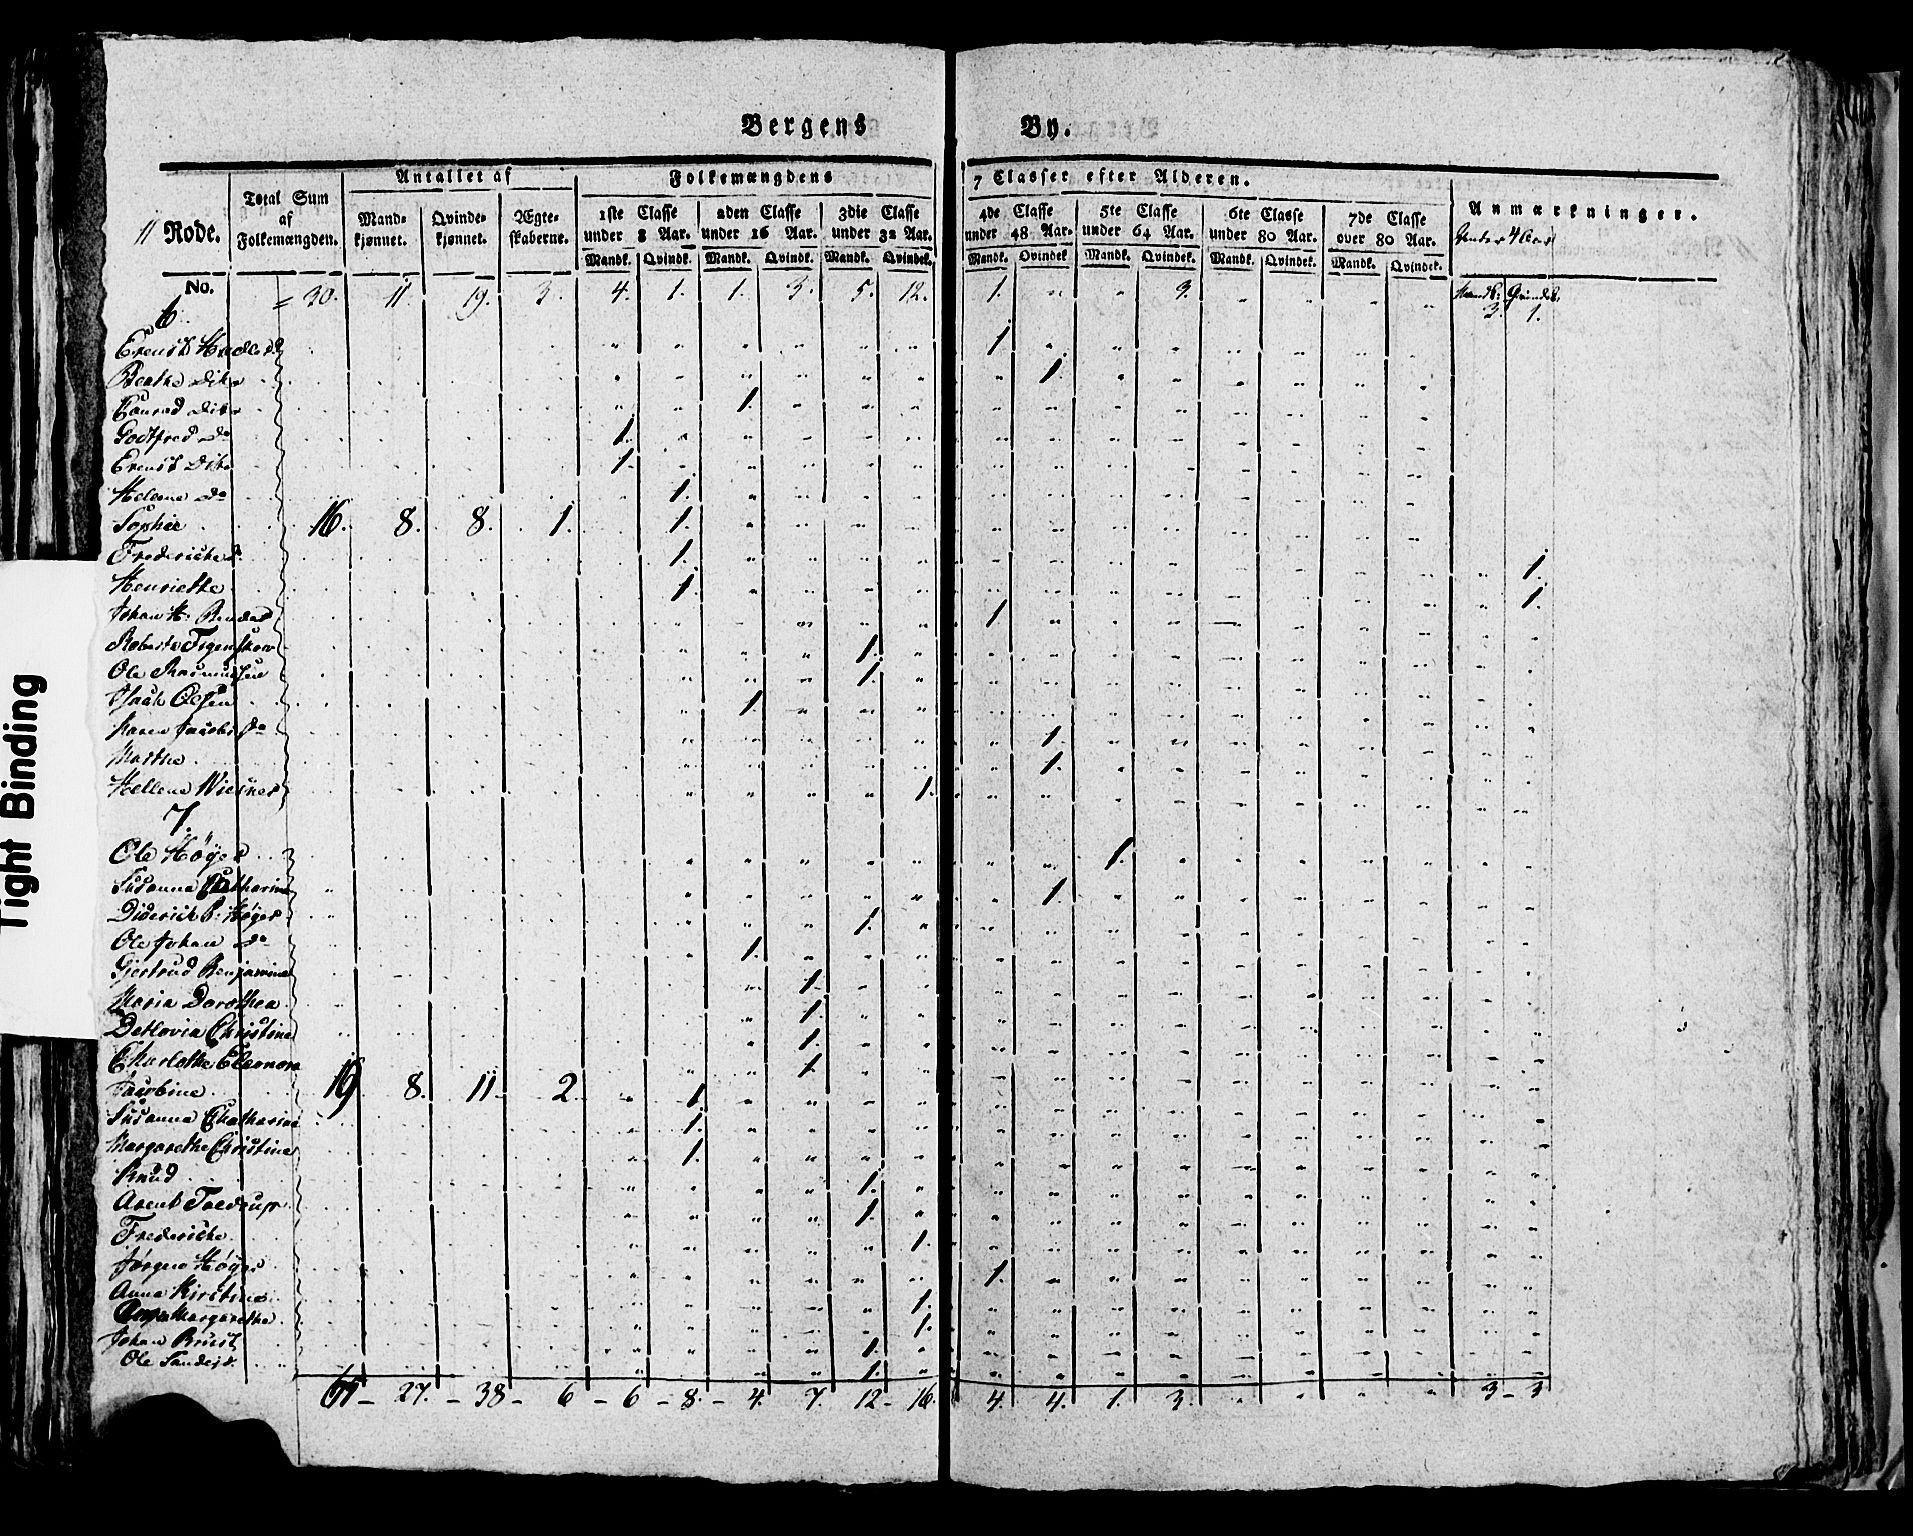 Bergens By.
11 Rode.
Total Sum af Folkemængden.
Antallet af
Mandkjønnet. Qvindekjønnet. Ægteskaberne.
Folkemængdens 7 Classer efter Alderen.
1ste Classe under 8 Aar. 2den Classe under 16 Aar. 3die Classe under 32 Aar. 4de Classe under 48 Aar. 5te Classe under 64 Aar. 6te Classe under 80 Aar. 7de Classe over 80 Aar.
Anmærkninger.
Under 4 Aar
Mandk. Qvindk. Mandk. Qvindk. Mandk. Qvindek. Mandk. Qvindek. Mandk. Qvindek. Mandk. Qvindek. Mandk. Qvindek.
Mandk: Qvindek.
No. = 30. 11. 19. 3. 4. 1. 1. 3. 5. 12. 1. " " 3. " " " " 3. 1.
6.
Ernst 1
Benthe Dito 1.
Conrad Dito 1.
Godtfred Do 1.
Ernst Dito 1.
Helene Do 1.
Sophie 16. 8. 8. 1. 1.
Frederiche d. 1. 1.
Henriethe 1. 1.
Johan H. 1
1.
Ole Rasmussen 1.
Isack Olsen 1.
Karen Jacobs Do 1.
Marthe 1.
Hellene Wiesner 1.
7.
Ole Høyer 1.
Susanna Chatharina 1.
Diderich B. Høyer 1.
Ole Johan Do 1.
Giertrud Benjamine 1.
Maria Dorothea 1.
Detlovia Christine 1.
Charlothe Eleonora 1.
Jacobine 19 8. 11 2 1.
Susanna Chatharine 1.
Margarethe Christine 1.
Knud 1.
Arent Toldrup 1.
Frederiche 1.
Jørgen Høyer 1.
Anna Kirstine 1.
Margarethe 1.
Johan 1.
Ole 1.
65 - 27. - 38 - 6 - 6 - 8. - 4. 7. 12 - 16. 4. 4. 1. 3. " " " " 3 - 3
Tight Binding